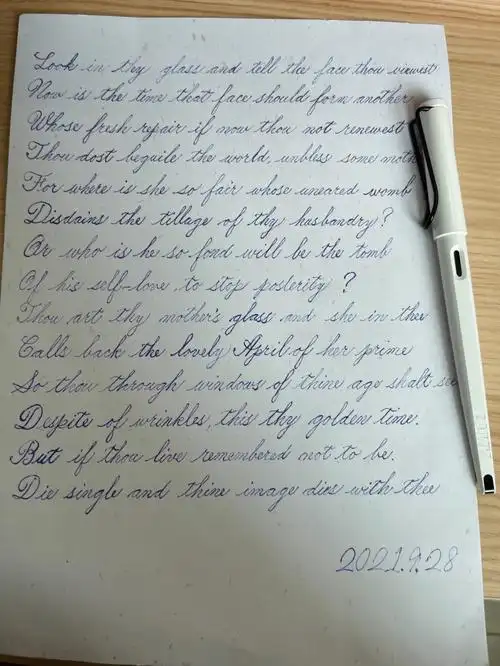 Look in thy glass and tell the face thou viewest
Now is the time that face should form another
Whose fresh repair if now thou not renewest
Thou dost beguile the world, unbless some moth
For where is she so fair whose uneared womb
Disdains the tillage of thy husbandry?
Or who is he so fond will be the tomb
Of his self-love, to stop posterity?
Thou art thy mother's glass and she in thee
Calls back the lovely April of her prime
So thou through windows of thine age shalt see
Despite of wrinkles, this thy golden time.
But if thou live remembered not to be.
Die single and thine image dies with thee
2021.9.28